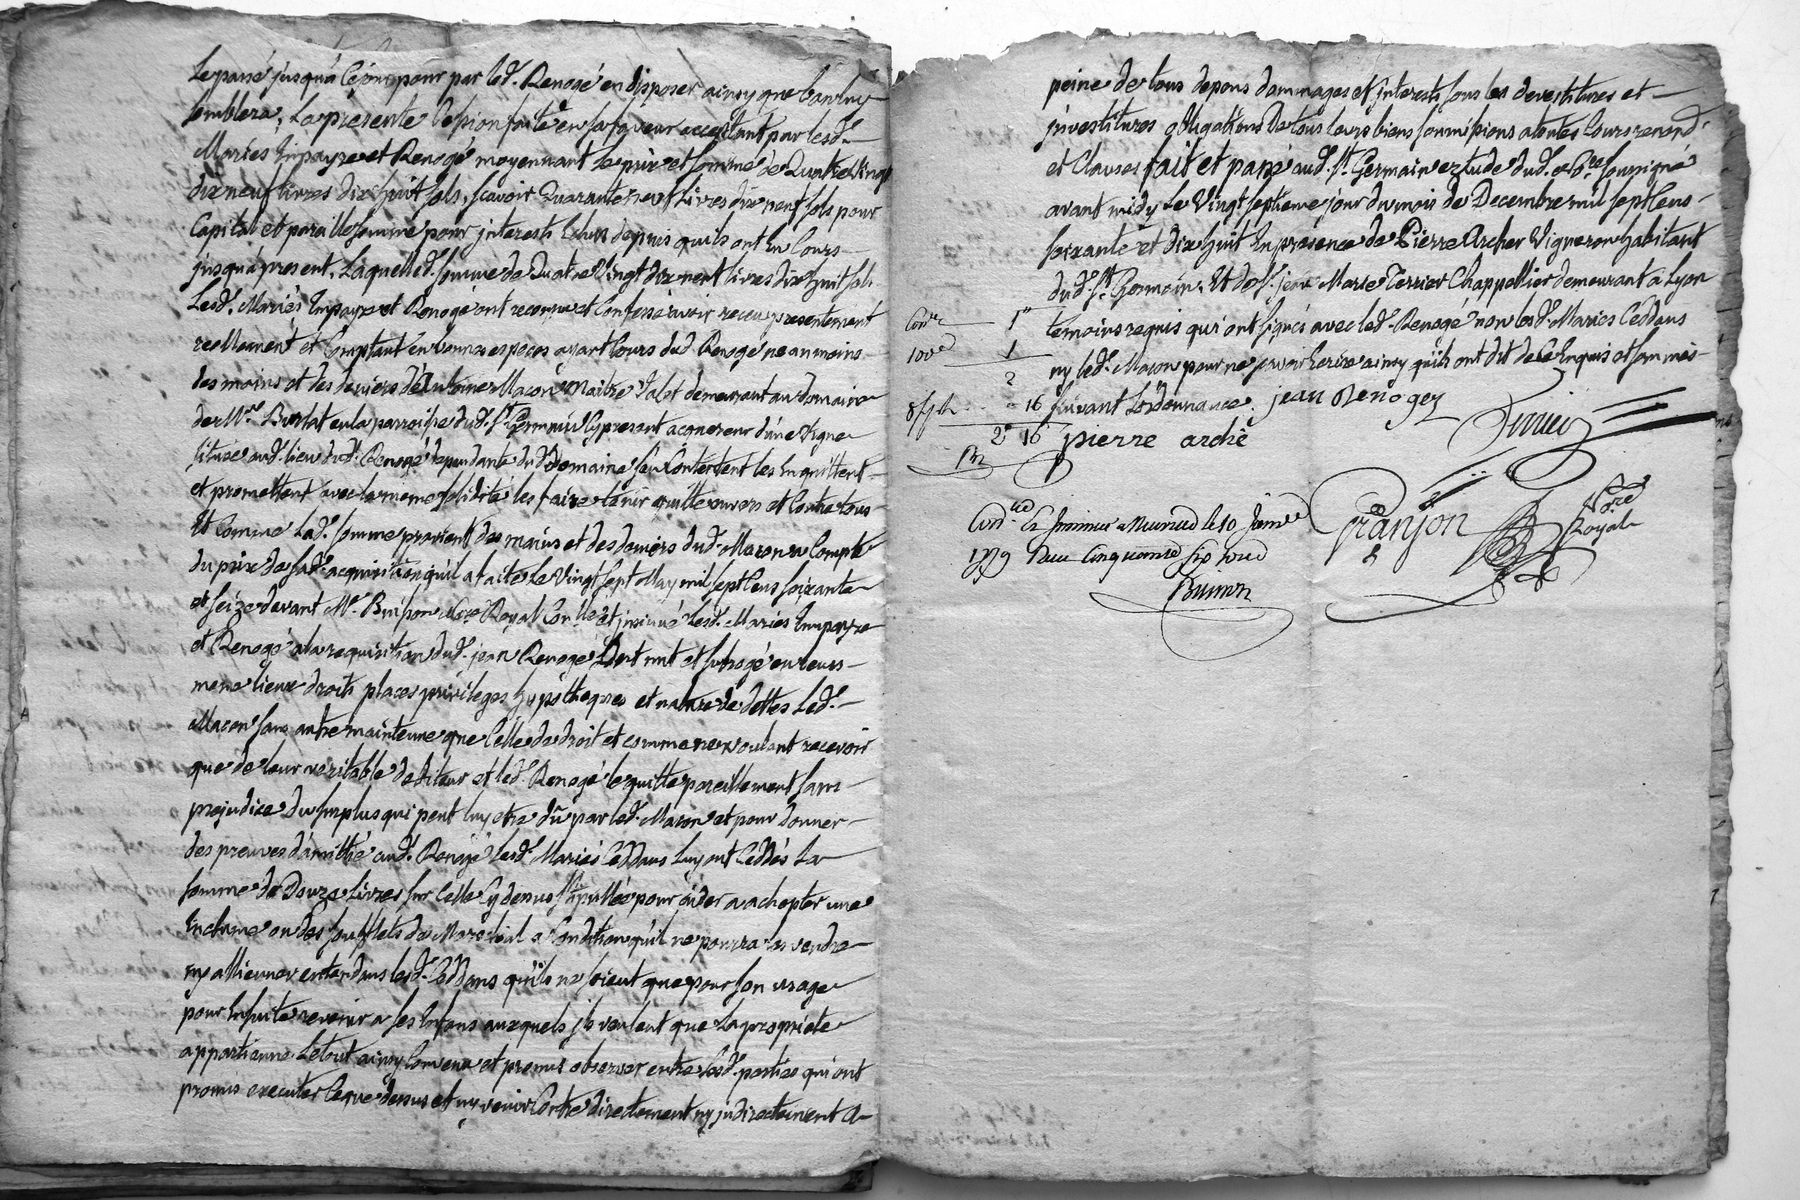 Le passé jusqu'a ce jour pour par led. Renogé en disposer ainsy que bon luy
semblera, La présente Cession faite en sa faveur acceptant par lesd.
Mariés Impayre et Renogé moyennant le prix et somme de Quatre Vingt
dix neuf livres dix huit sols, sçavoir Quarante neuf Livres dix neuf sols pour
Capital et pareille somme pour jnterests Echus depuis quils ont Eu Cours
jusqu'a present, Laquelled. somme de Quatre Vingt dix neuf livres dix huit sols
Lesd. Mariés Impayre et Renogé ont reconnu et Confessé avoir receu presentement
reellement et Comptant en bonnes especes ayant Cours dud Renogé neanmoins
des mains et des deniers d'Antoine Macon Maitre Valet demeurant au domaine
de Mr. Burlat en la parroisse dud. St. Germain Cy present acquereur d'une Vigne
situee aud. lieu dud. Renogé dependante dud Domaine sen Contentent les En quittent
et promettent avec la même solidité les faire tenir quitte envers et Contre tous
Et Comme Lad. somme provient des mains et des deniers dud. Macon a Compte
du prix de sad. acquisition qu'il a faite Le Vingt sept May mil sept Cens soixante
et seize devant Me. Buisson Nore Royal Con.lle et jnsinué Lesd. Mariés Impayre
et Renogé a la requisition dud. jean Renogé L'ont mit et subrogé en leurs
meme lieux droits places privileges hypotheques et nature de dettes Led.
Macon sans autre maintenue que Celle de droit et comme ne voulant recevoir
que de leur veritable debiteur et led. Renogé le quitte pareillement sans
prejudice du surplus qui peut luy etre dû par led. Macon et pour donner
des preuves d'amitié aud. Renogé Lesd. Mariés Ceddans Luy ont Ceddés La
somme de Douze Livres sur Celle Cy dessus stipullée pour aider a achepter une
Enclume ou des soufflets de Marechal a Condition qu'il ne pourra les vendre
ny allienner entendans lesd. Ceddans qu'ils ne soient que pour son usage
pour Ensuite revenir a ses Enfans auxquels jls veulent que La propriete
appartienne Le tout ainsy Convenu et promis observer entre Lesd. parties qui ont
promis executer Ce que dessus et ny venir Contre directement ny jndirectement a
peine de tous depens dommages et jnterests sous les devestitures et
jnvestitures obligations de tous leurs biens soumissions a toutes Cours renond.
et Clauses fait et passé aud. St. Germain etude dud. Nore. soussigné
avant midy Le Vingt septieme jour du mois de Decembre mil sept Cens
soixante et dix huit En presence de Pierre Archer Vigneron habitant
dud. St. Germain. Et de Sr. jean Marie Terrier Chappellier demeurant a Lyon
temoins requis qui ont signés avec led. Renogé non lesd. Mariés Ceddans
ny led. Macon pour ne sçavoir Ecrire ainsy qu'ils ont dit de Ce Enquis et sommés
suivant Lordonnance. jean Renogey
pierre archê
Con.le 1"
100e 1
2
8s pl. 16
2" 16
Con.lé Et Insinué a Neuville le 10 Janv.
1779 Reçu Cinquante six sols
Buisson
Granjon
Nore
Royal